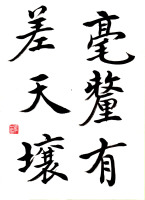 毫釐有
差天壌